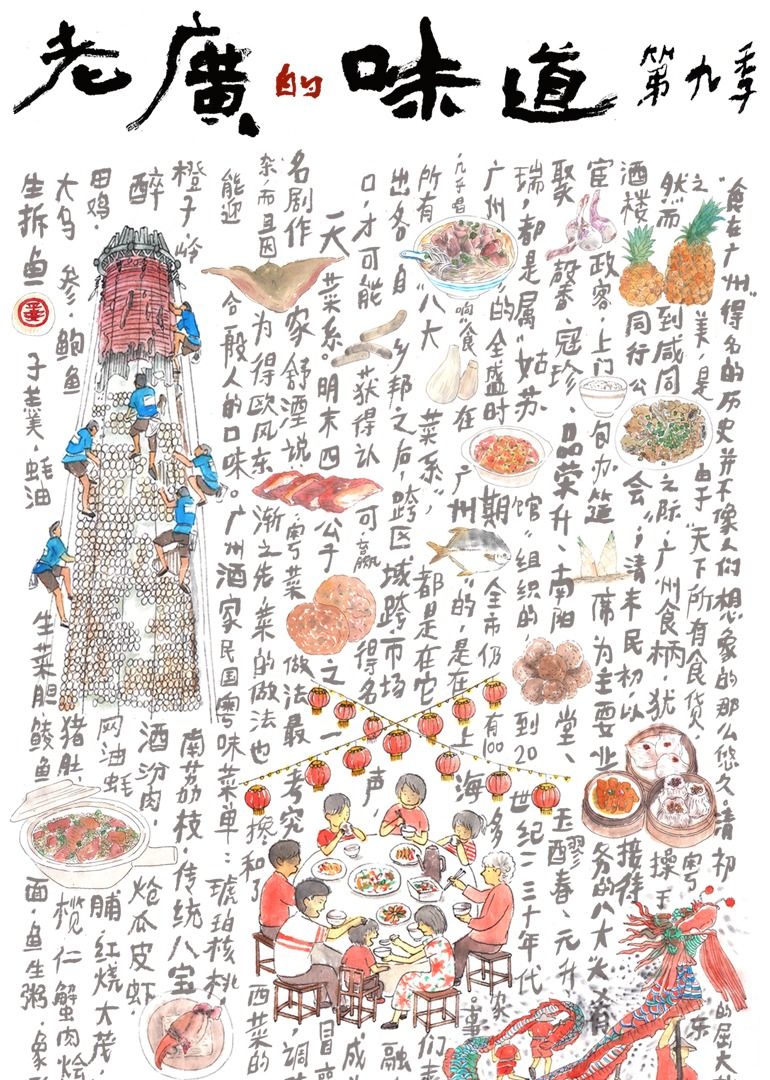 老廣的味道 第九季
“食在广州”得名的历史并不像人们想象的那么悠久。清初的屈大
之美，是由于“天下所有食货、粤东
然而到咸同之际，广州食柄，犹操于
酒楼同行公会”，清末民初，以接待
宦政客，上门包办筵席为主要业务的八大大肴
聚馨、冠珍、品荣升、南阳堂、玉醪春、元升
瑞，都是属“姑苏馆”组织的，到20世纪二三十年代
广州的全盛时期，全市仍有100多家
几乎唱响“食在广州”的，是在上海
所有“八大菜系”，都是在它们
出各自乡邦之后，跨区域跨市场融
口，才可能获得认可，赢得名声，成
一天菜系。明末四公子之一冒
名剧作家舒湮说：粤菜做法最考究，调
杂，而且因为得欧风东渐之先，菜的做法也掺和了西菜的
能迎合一般人的口味。广州酒家民国粤味菜单：琥珀核桃，
橙子，岭南荔枝，传统八宝
醉酒汾肉，炝瓜皮虾，
田鸡，网油蚝脯，红烧大茂，
大乌参，鲍鱼猪肚，榄仁蟹肉烩
生拆鱼子羹，蚝油生菜胆，鲮鱼面，鱼生粥，象形